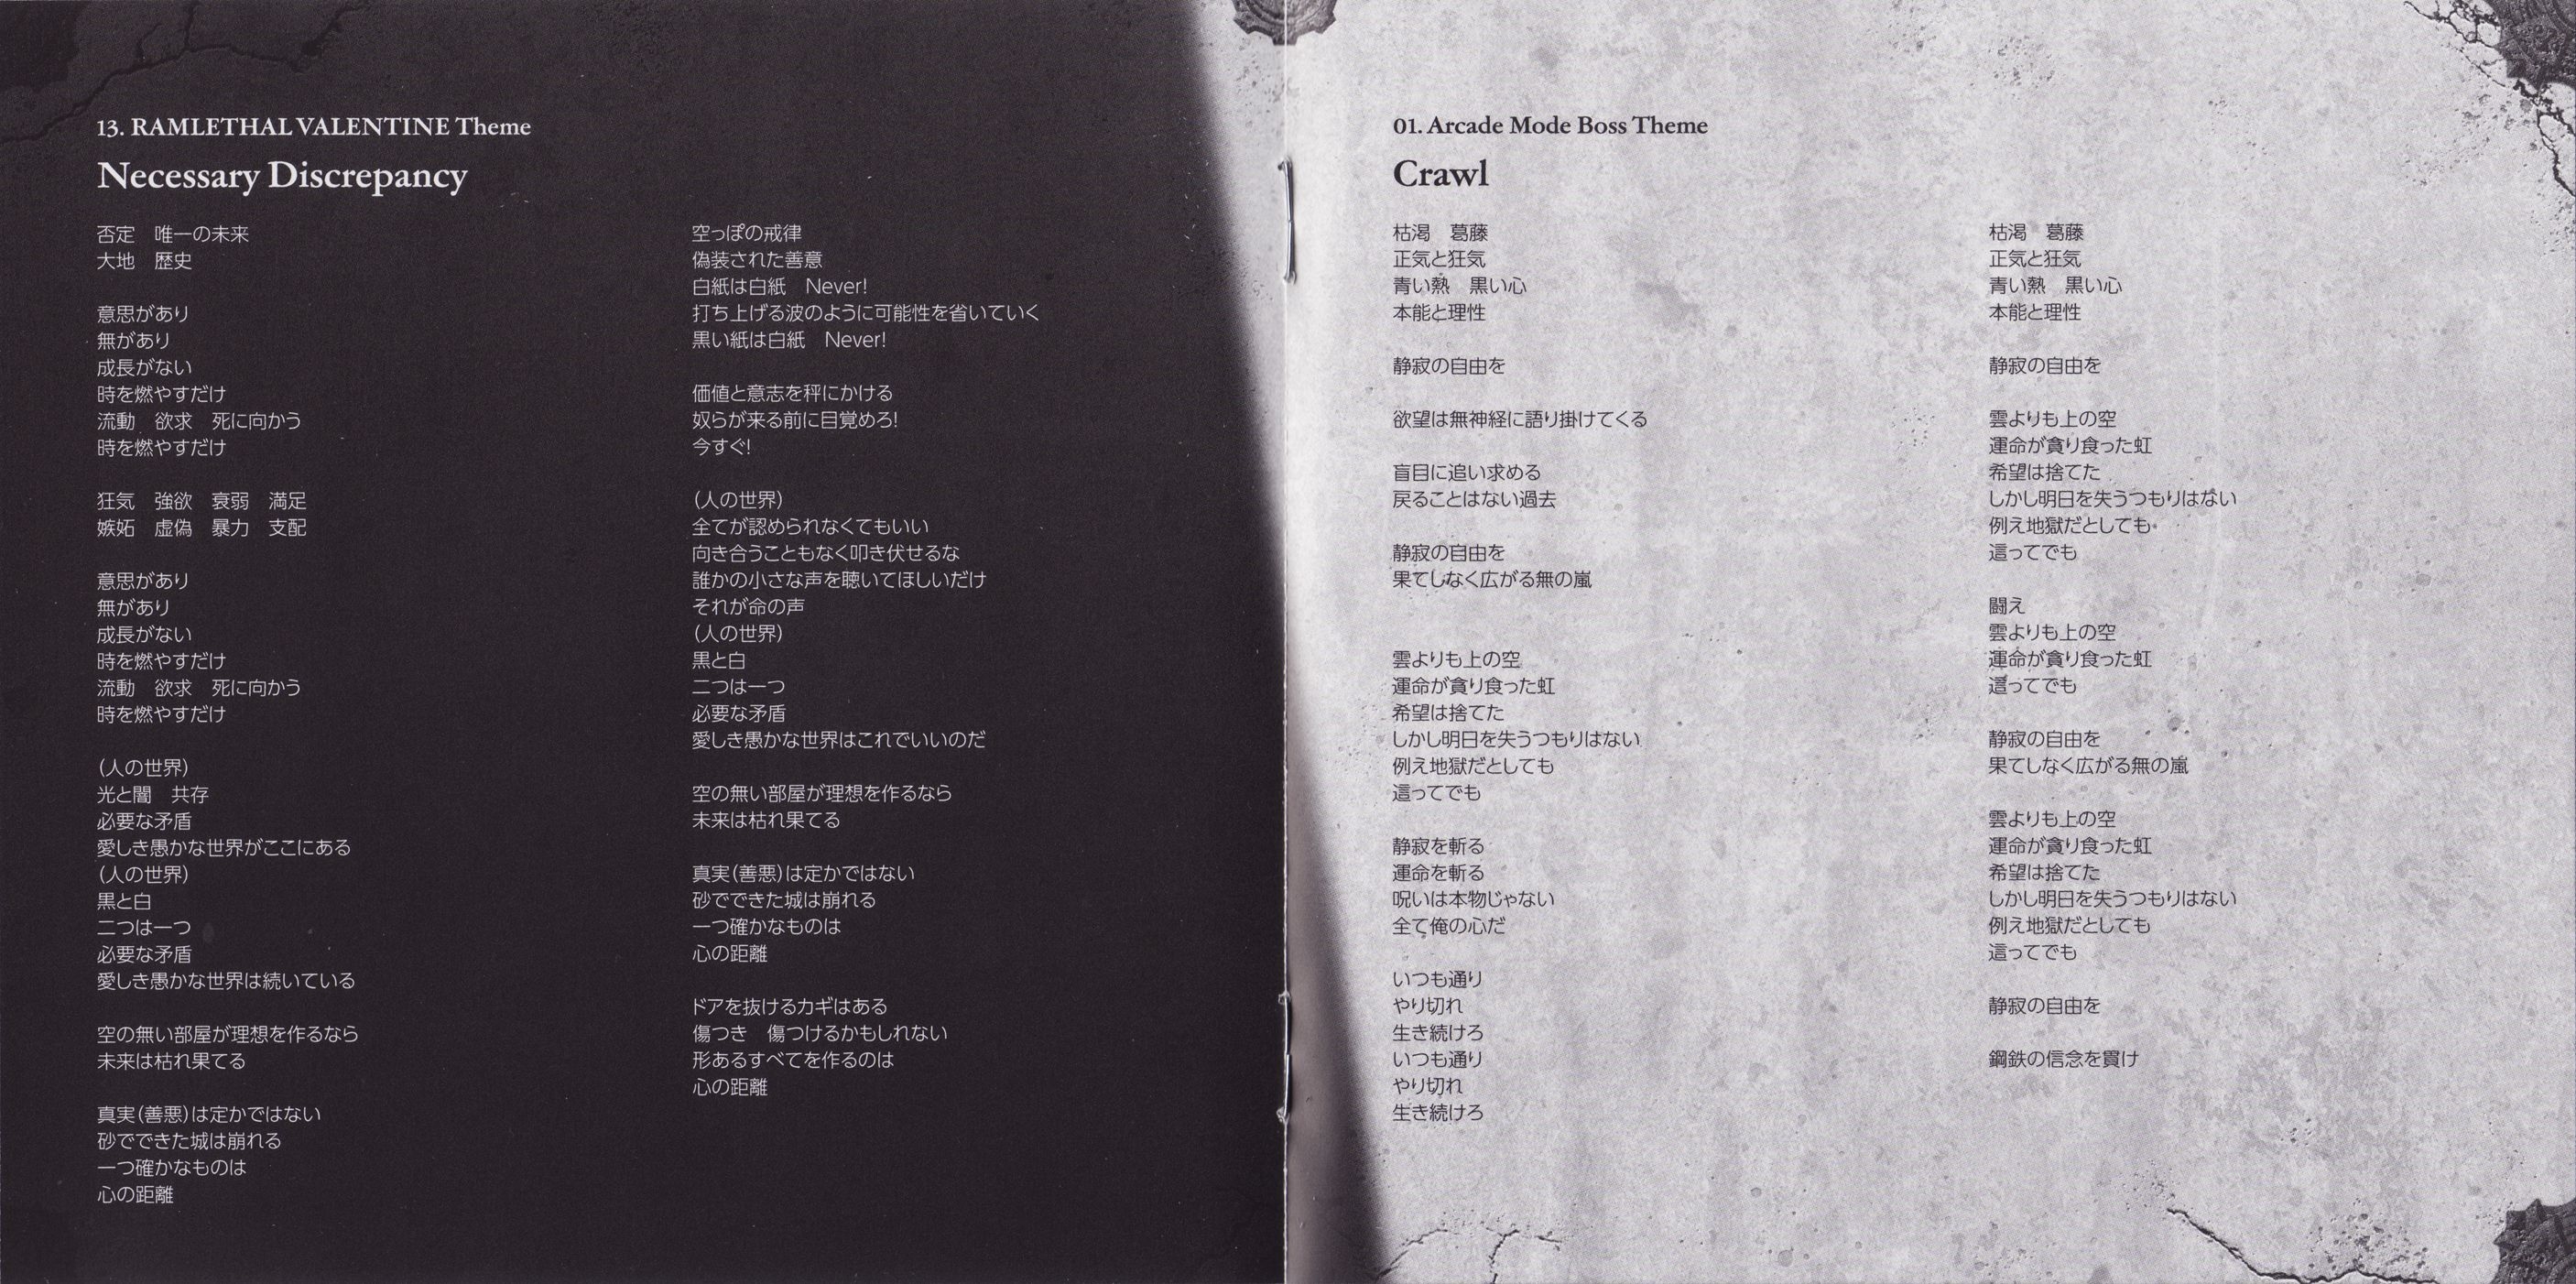 13. RAMLETHAL VALENTINE Theme
Necessary Discrepancy
否定　唯一の未来
大地　歴史
意思があり
無があり
成長がない
時を燃やすだけ
流動　欲求　死に向かう
時を燃やすだけ
狂気　強欲　衰弱　満足
嫉妬　虚偽　暴力　支配
意思があり
無があり
成長がない
時を燃やすだけ
流動　欲求　死に向かう
時を燃やすだけ
（人の世界）
光と闇　共存
必要な矛盾
愛しき愚かな世界がここにある
（人の世界）
黒と白
二つは一つ
必要な矛盾
愛しき愚かな世界は続いている
空の無い部屋が理想を作るなら
未来は枯れ果てる
真実（善悪）は定かではない
砂でできた城は崩れる
一つ確かなものは
心の距離
空っぽの戒律
偽装された善意
白紙は白紙　Never!
打ち上げる波のように可能性を省いていく
黒い紙は白紙　Never!
価値と意志を秤にかける
奴らが来る前に目覚めろ!
今すぐ!
（人の世界）
全てが認められなくてもいい
向き合うこともなく叩き伏せるな
誰かの小さな声を聴いてほしいだけ
それが命の声
（人の世界）
黒と白
二つは一つ
必要な矛盾
愛しき愚かな世界はこれでいいのだ
空の無い部屋が理想を作るなら
未来は枯れ果てる
真実（善悪）は定かではない
砂でできた城は崩れる
一つ確かなものは
心の距離
ドアを抜けるカギはある
傷つき　傷つけるかもしれない
形あるすべてを作るのは
心の距離
01. Arcade Mode Boss Theme
Crawl
枯渇　葛藤
正気と狂気
青い熱　黒い心
本能と理性
静寂の自由を
欲望は無神経に語り掛けてくる
盲目に追い求める
戻ることはない過去
静寂の自由を
果てしなく広がる無の嵐
雲よりも上の空
運命が貪り食った虹
希望は捨てた
しかし明日を失うつもりはない
例え地獄だとしても
這ってでも
静寂を斬る
運命を斬る
呪いは本物じゃない
全て俺の心だ
いつも通り
やり切れ
生き続けろ
いつも通り
やり切れ
生き続けろ
枯渇　葛藤
正気と狂気
青い熱　黒い心
本能と理性
静寂の自由を
雲よりも上の空
運命が貪り食った虹
希望は捨てた
しかし明日を失うつもりはない
例え地獄だとしても
這ってでも
闘え
雲よりも上の空
運命が貪り食った虹
這ってでも
静寂の自由を
果てしなく広がる無の嵐
雲よりも上の空
運命が貪り食った虹
希望は捨てた
しかし明日を失うつもりはない
例え地獄だとしても
這ってでも
静寂の自由を
鋼鉄の信念を貫け